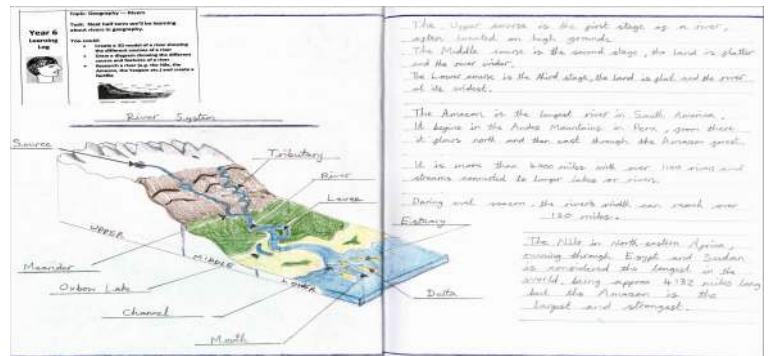 Year 6
Learning
Log
Topic: Geography — Rivers
Task: Next half term we'll be learning
about rivers in geography.
You could:
Create a 3D model of a river showing
the different courses of a river
Draw a diagram showing the different
course and features of a river
Research a river (e.g. the Nile, the
Amazon, the Yangtze etc.) and create a
River System
Source
Tributary
River
Levee
UPPER
MIDDLE
LOWER
Meander
Oxbow Lake
Channel
Mouth
Estuary
Delta
The Upper course is the first stage of a river,
often located on high grounds.
The Middle course is the second stage, the land is flatter
and the river wider.
The Lower course is the third stage, the land is flat and the river
at its widest.
The Amazon is the largest river in South America.
It begins in the Andes Mountains in Peru, from there
it flows north and then east through the Amazon forest.
It is more than miles with over 1100 rivers and
streams connected to larger lakes or rivers.
During wet season, the river's width can reach over
120 miles.
The Nile in North eastern Africa,
running through Egypt and Sudan
is considered the longest in the
world, being approx 4132 miles long
but the Amazon is the
largest and strongest.